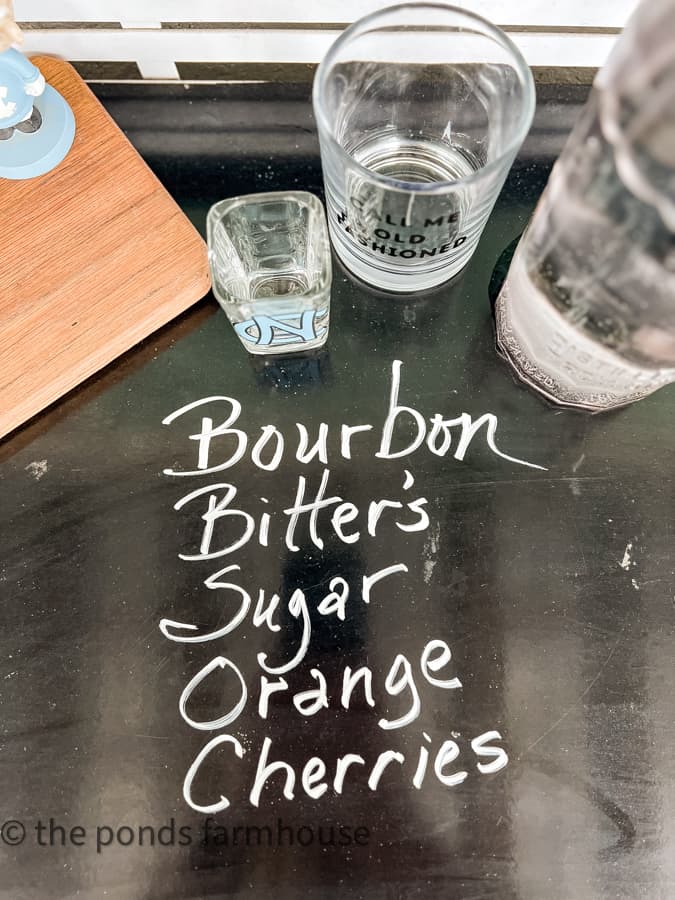 CALL ME
OLD
FASHIONED
NC
Bourbon
Bitter's
Sugar
Orange
Cherries
© the ponds farmhouse